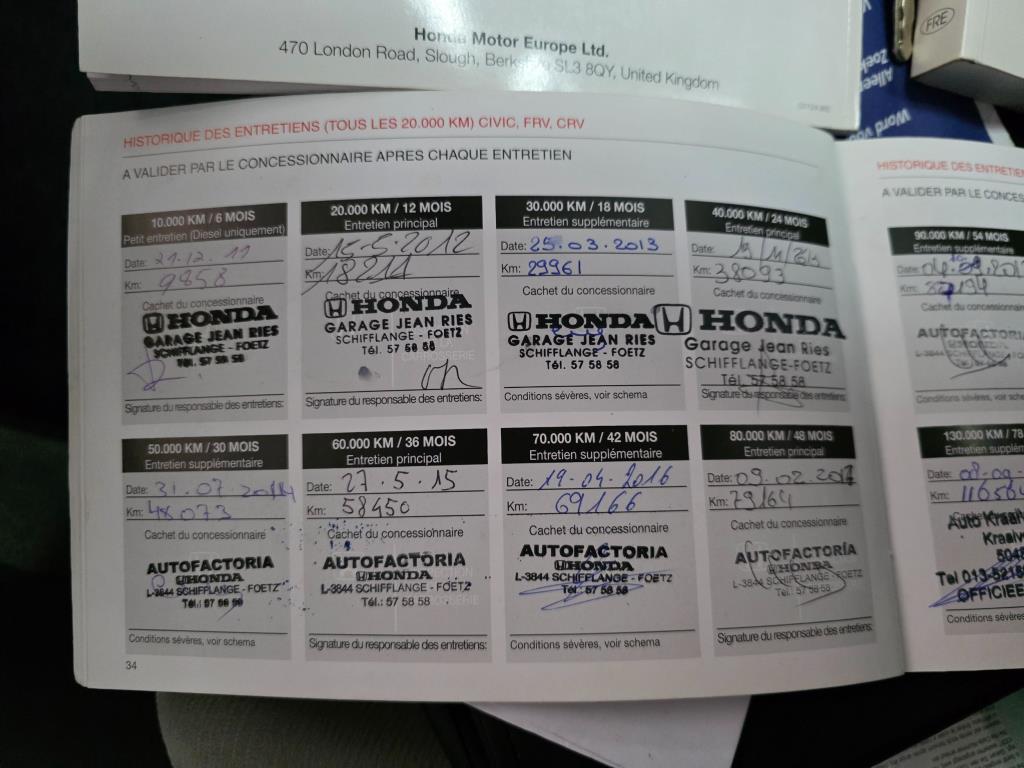 Honda Motor Europe Ltd.
470 London Road, Slough, Berkshire SL3 8QY, United Kingdom
FRE
HISTORIQUE DES ENTRETIENS (TOUS LES 20.000 KM) CIVIC, FRV, CRV
A VALIDER PAR LE CONCESSIONNAIRE APRES CHAQUE ENTRETIEN
10.000 KM / 6 MOIS
Petit entretien (Diesel uniquement)
Date: 21.12.11
Km: 9858
Cachet du concessionnaire
HONDA
GARAGE JEAN RIES
SCHIFFLANGE - FOETZ
Tél. 57 58 58
Signature du responsable des entretiens:
20.000 KM / 12 MOIS
Entretien principal
Date: 15.5.2012
Km: 18211
Cachet du concessionnaire
HONDA
GARAGE JEAN RIES
SCHIFFLANGE - FOETZ
Tél. 57 58 58
Signature du responsable des entretiens:
30.000 KM / 18 MOIS
Entretien supplémentaire
Date: 25.03.2013
Km: 29961
Cachet du concessionnaire
HONDA
GARAGE JEAN RIES
SCHIFFLANGE - FOETZ
Tél. 57 58 58
Conditions sévères, voir schema
40.000 KM / 24 MOIS
Entretien principal
Date:
Km: 38093
Cachet du concessionnaire
HONDA
Garage Jean Ries
SCHIFFLANGE-FOETZ
Tél. 57 58 58
Signature du responsable des entretiens:
50.000 KM / 30 MOIS
Entretien supplémentaire
Date: 31.07.2014
Km: 48073
Cachet du concessionnaire
AUTOFACTORIA
HONDA
L-3844 SCHIFFLANGE - FOETZ
Tél.: 57 58 58
Conditions sévères, voir schema
60.000 KM / 36 MOIS
Entretien principal
Date: 27.5.15
Km: 58450
Cachet du concessionnaire
AUTOFACTORIA
HONDA
L-3844 SCHIFFLANGE - FOETZ
Tél.: 57 58 58
Signature du responsable des entretiens:
70.000 KM / 42 MOIS
Entretien supplémentaire
Date: 19.04.2016
Km: 69166
Cachet du concessionnaire
AUTOFACTORIA
HONDA
L-3844 SCHIFFLANGE - FOETZ
Tél.: 57 58 58
Conditions sévères, voir schema
80.000 KM / 48 MOIS
Entretien principal
Date: 09.02.2017
Km: 79164
Cachet du concessionnaire
AUTOFACTORIA
HONDA
L-3844 SCHIFFLANGE - FOETZ
Tél.: 57 58 58
Signature du responsable des entretiens:
34
HISTORIQUE DES ENTRETIEN
A VALIDER PAR LE CONCES
90.000 KM / 54 MOIS
Entretien supplémentaire
Date:
Km:
Cachet du concessionna
AUTOFACTORIA
Conditions sévères, voir
130.000 KM / 78
Entretien supplém
Date:
Km:
Auto Kraai
Kraaiv
Conditions sévères